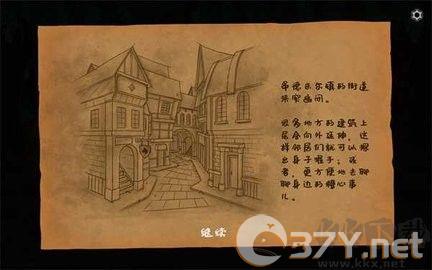 镇的街道
狭窄幽闭。
很多地方的建筑上
层会向外延伸，这
样邻居们就可以探
出身子握手；或
者，更方便地去聊
聊身边的糟心事
儿。
继续
37Y.net
www.kkx.net